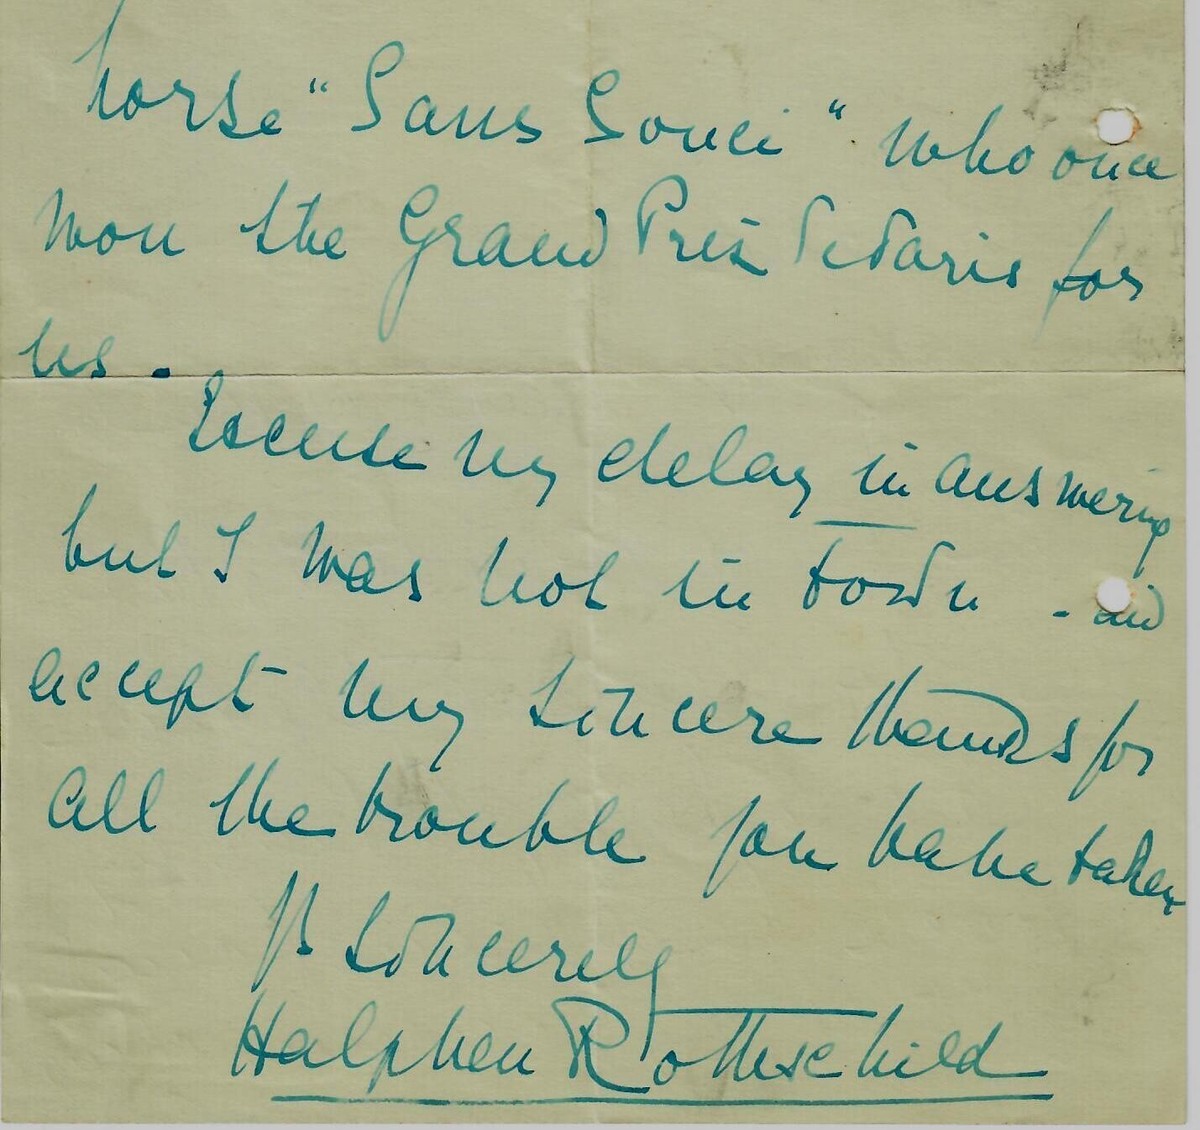 horse "Sans Souci" who once
won the Grand Prix de Paris for
us.
Excuse my delay in answering
but I was not in town - and
accept my sincere thanks for
all the trouble you have taken
Yrs sincerely
Halphen Rothschild